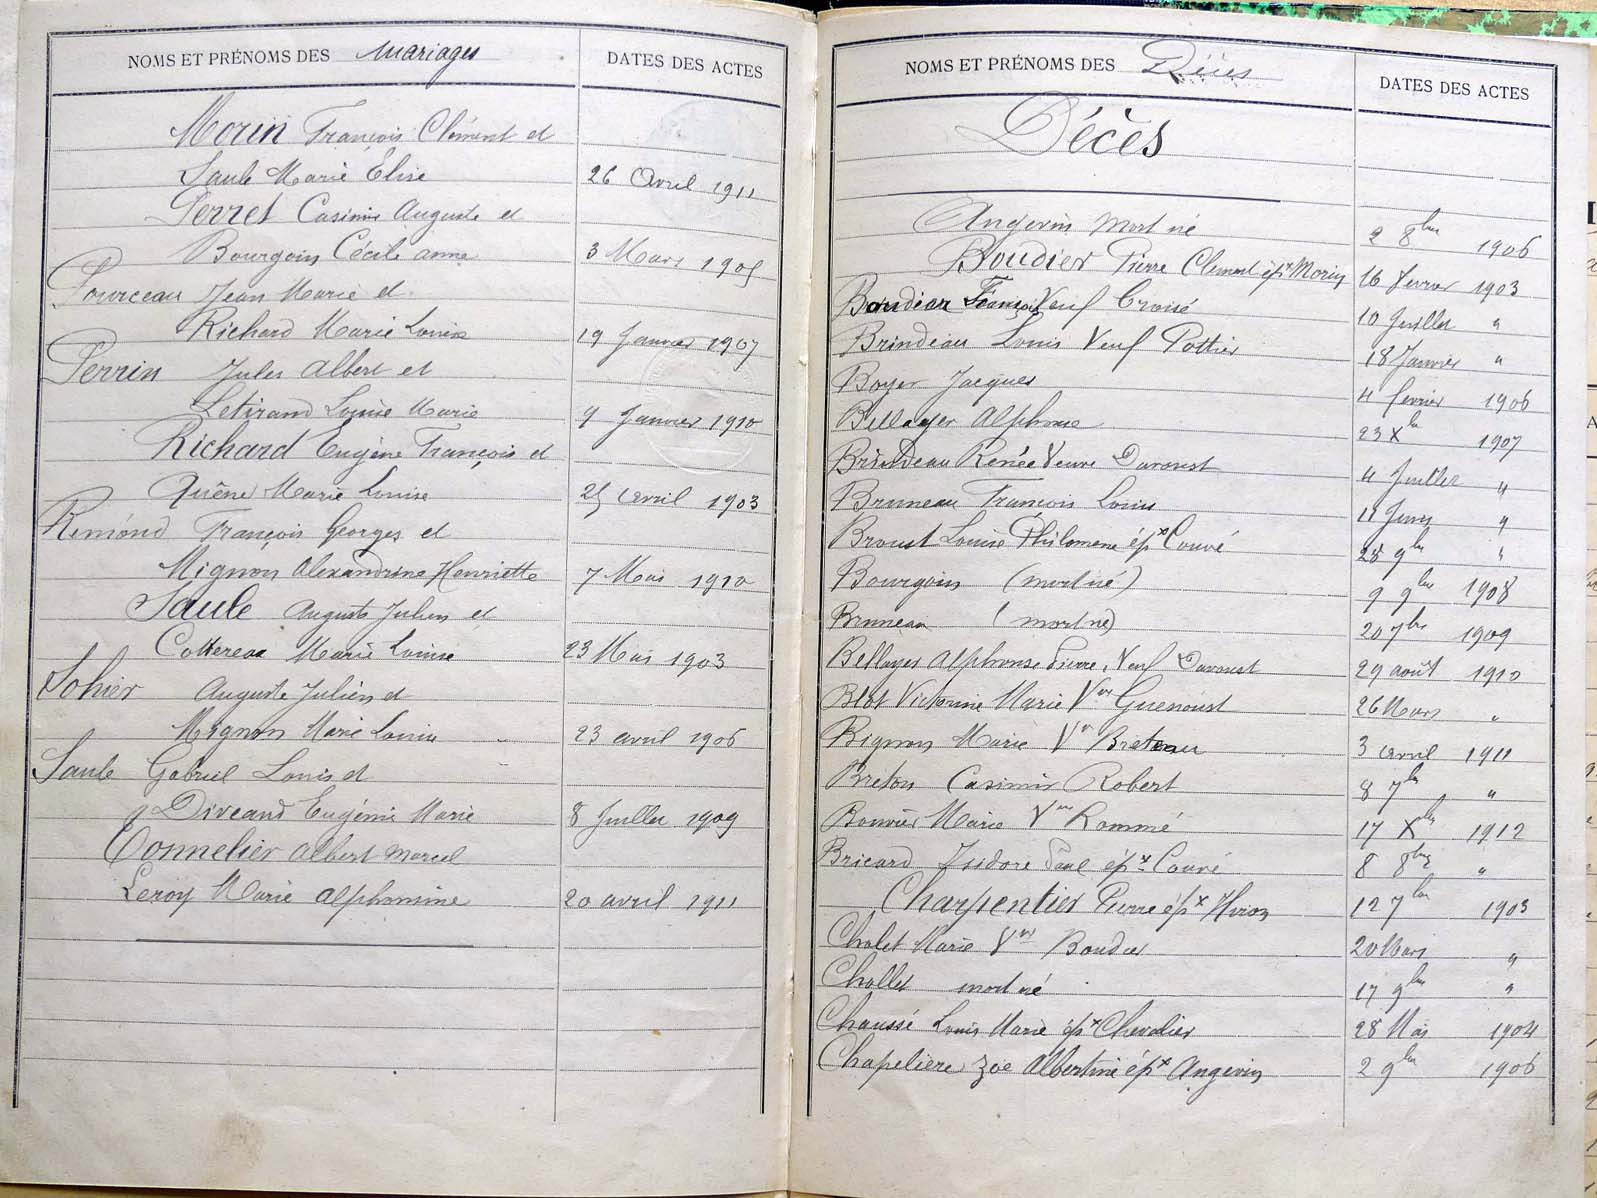 NOMS ET PRÉNOMS DES Mariages DATES DES ACTES
Morin François Clément et
Saule Marie Élise 26 Avril 1911
Perret Casimir Auguste et
Bourgoin Cécile anne 3 Mars 1905
Pourceau Jean Marie et
Richard Marie Louise 19 Janvier 1907
Perrin Jules Albert et
Letirand Louise Marie 9 Janvier 1910
Richard Eugène François et
Quêne Marie Louise 25 avril 1903
Rémond François Georges et
Mignon Alexandrine Henriette 7 Mai 1910
Saule Auguste Julien et
Cottereau Marie Louise 23 Mai 1903
Sohier Auguste Julien et
Mignon Marie Louise 23 avril 1906
Saule Gabriel Louis et
Diveand Eugénie Marie 8 Juillet 1909
Tonnelier Albert Marcel
Leroy Marie Alphonsine 20 avril 1911
NOMS ET PRÉNOMS DES Décès DATES DES ACTES
Décès
Angevin Mort né 2 8bre 1906
Boudier Pierre Clement épx Morin 16 fevrier 1903
Boudier François Veuf Croisé 10 Juillet "
Brindeau Louis Veuf Pottier 18 Janvier "
Boyer Jacques 4 fevrier 1906
Bellayer Alphonse 23 Xbre 1907
Brindeau Renée Veuve Davoust 4 Juillet "
Bruneau François Louis 11 Janv "
Broust Louise Philomene épx Couvé 28 9bre "
Bourgoin (mort né) 9 9bre 1908
Bruneau (mort né) 20 7bre 1909
Bellayer Alphonse Pierre, Veuf Davoust 29 août 1910
Blot Victorine Marie Vve Guenoust 26 Mars "
Bignon Marie Vve Breteau 3 avril 1911
Breton Casimir Robert 8 7bre "
Bouvier Marie Vve Rommé 17 Xbre 1912
Bricard Isidore Paul épx Couvé 8 8bre "
Charpentier Pierre épx Hiron 12 7bre 1903
Cholet Marie Vve Boudier 20 Mars "
Chollet mort né 17 9bre "
Chaussé Louis Marie épx Chevalier 28 Mai 1904
Chapelière Zoé Albertine épx Angevin 2 9bre 1906